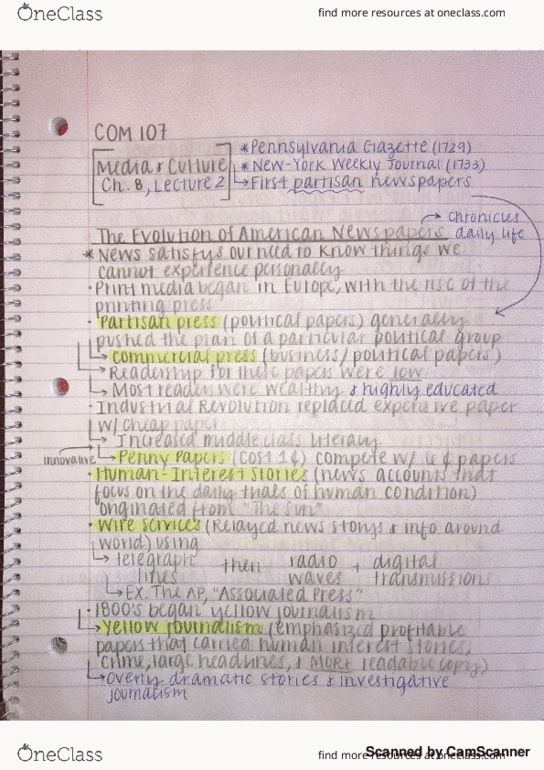 OneClass
find more resources at oneclass.com
COM 107
Media & Culture
Ch. 8, Lecture 2
* Pennsylvania Gazette (1729)
* New-York Weekly Journal (1733)
↳ First partisan newspapers
→ chronicles
daily life
The Evolution of American Newspapers
* News satisfys our need to know things we
cannot experience personally
· Print media began in Europe, with the rise of the
printing press
· Partisan press (political papers) generally
pushed the plan of a particular political group
↳ commercial press (business/political papers)
↳ Readership for these papers were low
↳ Most readers were wealthy & highly educated
· Industrial Revolution replaced expensive paper
w/ cheap paper
↳ Increased middle class literacy
innovative ↳ Penny Papers (cost 1¢) compete w/ 6¢ papers
· Human-Interest Stories (news accounts that
focus on the daily trials of human condition)
originated from "The Sun"
· Wire services (Relayed news storys & info around
world) using
↳ telegraph lines then radio waves + digital transmissions
↳ EX. The AP, "Associated Press"
· 1800's began yellow journalism
↳ Yellow Journalism (emphasized profitable
papers that carried human interest stories,
crime, large headlines, & MORE readable copy)
↳ overly dramatic stories & investigative
journalism
OneClass
find more resources at oneclass.com
Scanned by CamScanner